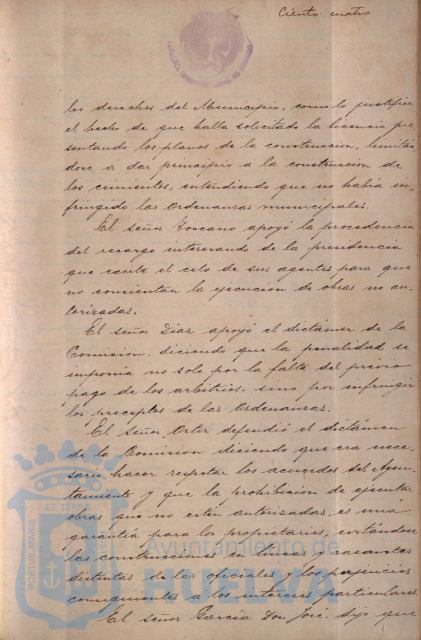 Ciento cuatro
los derechos del Municipio, como lo justifica
el hecho de que halla solicitado la licencia pre-
sentando los planos de la construccion, limitan
dose á dar principio a la construccion de
los cimientos, entendiendo que no habia in-
fringido las Ordenanzas municipales.
El señor Toscano apoyó la procedencia
del recargo interesando de la presidencia
que excite el celo de sus agentes para que
no consientan la ejecucion de obras no au-
torizadas.
El señor Diaz apoyó el dictámen de la
Comision, diciendo que la penalidad se
imponia no solo por la falta del previo
pago de los arbitrios, sino por infringir
los preceptos de las Ordenanzas.
El señor Ortiz defendió el dictámen
de la Comision diciendo que era nece-
sario hacer respetar los acuerdos del Ayun-
tamiento y que la prohibicion de ejecutar
obras que no estén autorizadas, es una
garantía para los propietarios, evitándose
las construcciones en lineas y rasantes
distintas de las oficiales y los perjuicios
consiguientes a los intereses particulares.
El señor Garcia Don José, dijo que
Ayuntamiento de
HUELVA